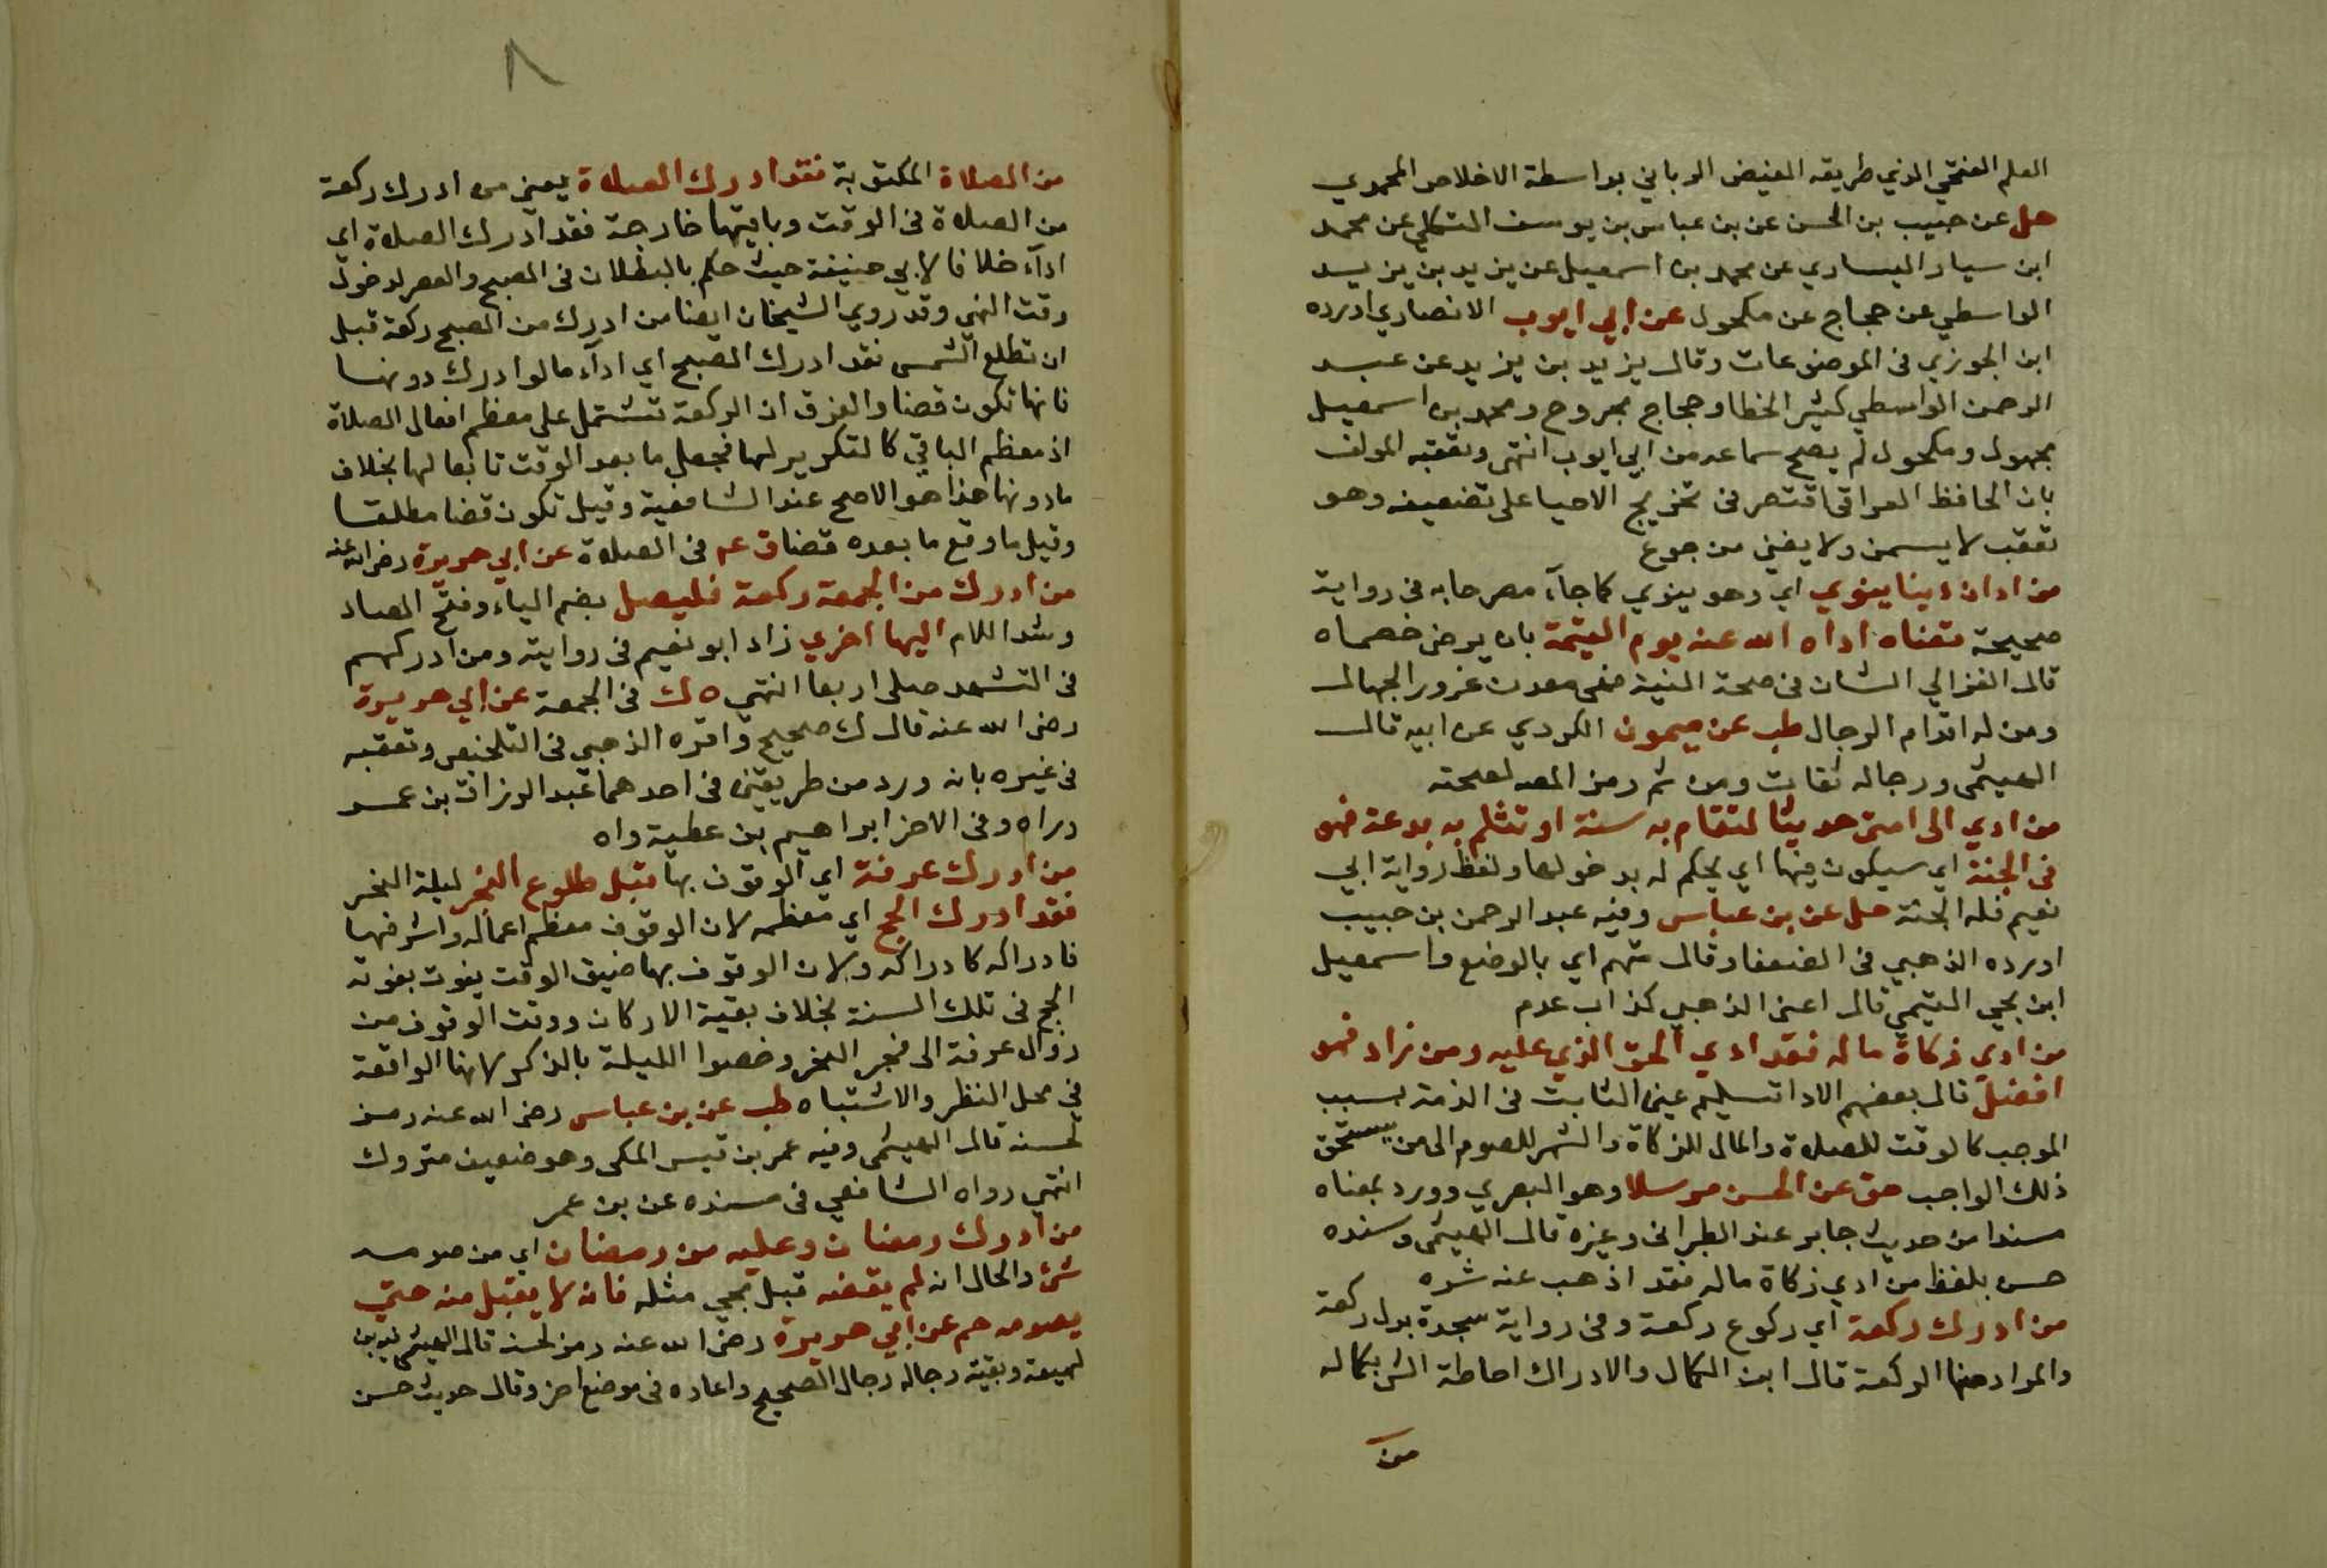 العلم الفتحي الذي طريقه الفيض الرباني بواسطة الاخلاص المحمدي
حل عن حبيب بن الحسن عن بن عباس بن يوسف الشكلي عن محمد
ابن سيار اليساري عن محمد بن اسمعيل عن يزيد بن يزيد
الواسطي عن حجاج عن مكحول عن ابي ايوب الانصاري اورده
ابن الجوزي في الموضوعات وقال يزيد بن يزيد عن عبد
الرحمن الواسطي كثير الخطا وحجاج مجروح ومحمد بن اسمعيل
مجهول ومكحول لم يصح سماعه من ابي ايوب انتهى وتعقبه المولف
بان الحافظ العراقي اقتصر في تخريج الاحيا على تضعيفه وهو
تعقب لا يسمن ولا يغني من جوع
من ادان دينا ينوي اي وهو ينوي كما جآء مصرحا به في رواية
صحيحة قضاه اداه الله عنه يوم القيمة بان يرضى خصماه
قال الغزالي الشان في صحة النية فهي معدن غرور الجهال
ومزلة اقدام الرجال طب عن ميمون الكردي عن ابيه قال
الهيثمى ورجاله ثقات ومن ثم رمز المص لصحته
من ادي الى امتى حديثا لتقام به سنة او تثلم به بدعة فهو
في الجنة اي سيكون فيها اي يحكم له بدخولها ولفظ رواية ابي
نعيم فله الجنة حل عن بن عباس وفيه عبد الرحمن بن حبيب
اورده الذهبي في الضعفا وقال متهم اي بالوضع واسمعيل
ابن يحيي التيمي قال اعنى الذهبي كذاب عدم
من ادي زكاة ماله فقد ادي الحق الذي عليه ومن زاد فهو
افضل قال بعضهم الادا تسليم عين الثابت في الذمة بسبب
الموجب كالوقت للصلاة والمال للزكاة والشهر للصوم الى من يستحق
ذلك الواجب هق عن الحسن مرسلا وهو البصري وورد بمعناه
مسندا من حديث جابر عند الطبراني وغيره قال الهيثمى وسنده
حسن بلفظ من ادي زكاة ماله فقد اذهب عنه شره
من ادرك ركعة اي ركوع ركعة وفي رواية سجدة بدل ركعة
والمراد منها الركعة قال ابن الكمال والادراك احاطة الشي بكماله
من
٨
من الصلاة المكتوبة فقد ادرك الصلاة يعني من ادرك ركعة
من الصلاة في الوقت وباقيها خارجة فقد ادرك الصلاة اي
ادآء خلافا لابي حنيفة حيث حكم بالبطلان في الصبح والعصر لدخول
وقت النهي وقد روي الشيخان ايضا من ادرك من الصبح ركعة قبل
ان تطلع الشمس فقد ادرك الصبح اي ادآء ما لو ادرك دونها
فانها تكون قضا والفرق ان الركعة تشتمل على معظم افعال الصلاة
اذ معظم الباقي كالتكرير لها فجعل ما بعد الوقت تابعا لها بخلاف
ما دونها هذا هو الاصح عند الشافعية وقيل تكون قضا مطلقا
وقيل ما وقع ما بعده قضا ق عم في الصلاة عن ابي هريرة رضي الله عنه
من ادرك من الجمعة ركعة فليصل بضم الياء وفتح الصاد
وشد اللام اليها اخري زاد ابو نعيم في روايته ومن ادركهم
في التشهد صلى اربعا انتهى ه ك في الجمعة عن ابي هريرة
رضي الله عنه قال ك صحيح واقره الذهبي في التلخيص وتعقبه
في غيره بانه ورد من طريقين في احدهما عبد الرزاق بن عمر
وراه وفى الاخر ابراهيم بن عطية واه
من ادرك عرفة اي الوقوف بها قبل طلوع الفجر ليلة النحر
فقد ادرك الحج اي معظمه لان الوقوف معظم اعماله واشرفها
فادراكه كادراكه ولان الوقوف بها ضيق الوقت يفوت بفوته
الحج في تلك السنة بخلاف بقية الاركان ووقت الوقوف من
زوال عرفة الى فجر النحر وخصوا الليلة بالذكر لانها الواقعة
في محل النظر والاشتباه طب عن بن عباس رضي الله عنه رمز
لحسنه قال الهيثمى وفيه عمر بن قيس المكى وهو ضعيف متروك
انتهي رواه الشافعي في مسنده عن بن عمر
من ادرك رمضان وعليه من رمضان اي من صومه
شئ والحال انه لم يقضه قبل مجي مثله فانه لا يقبل منه حتي
يصومه حم عن ابي هريرة رضي الله عنه رمز لحسنه قال الهيثمى فيه بن
لهيعة وبقية رجاله رجال الصحيح واعاده في موضع اخر وقال حديث حسن